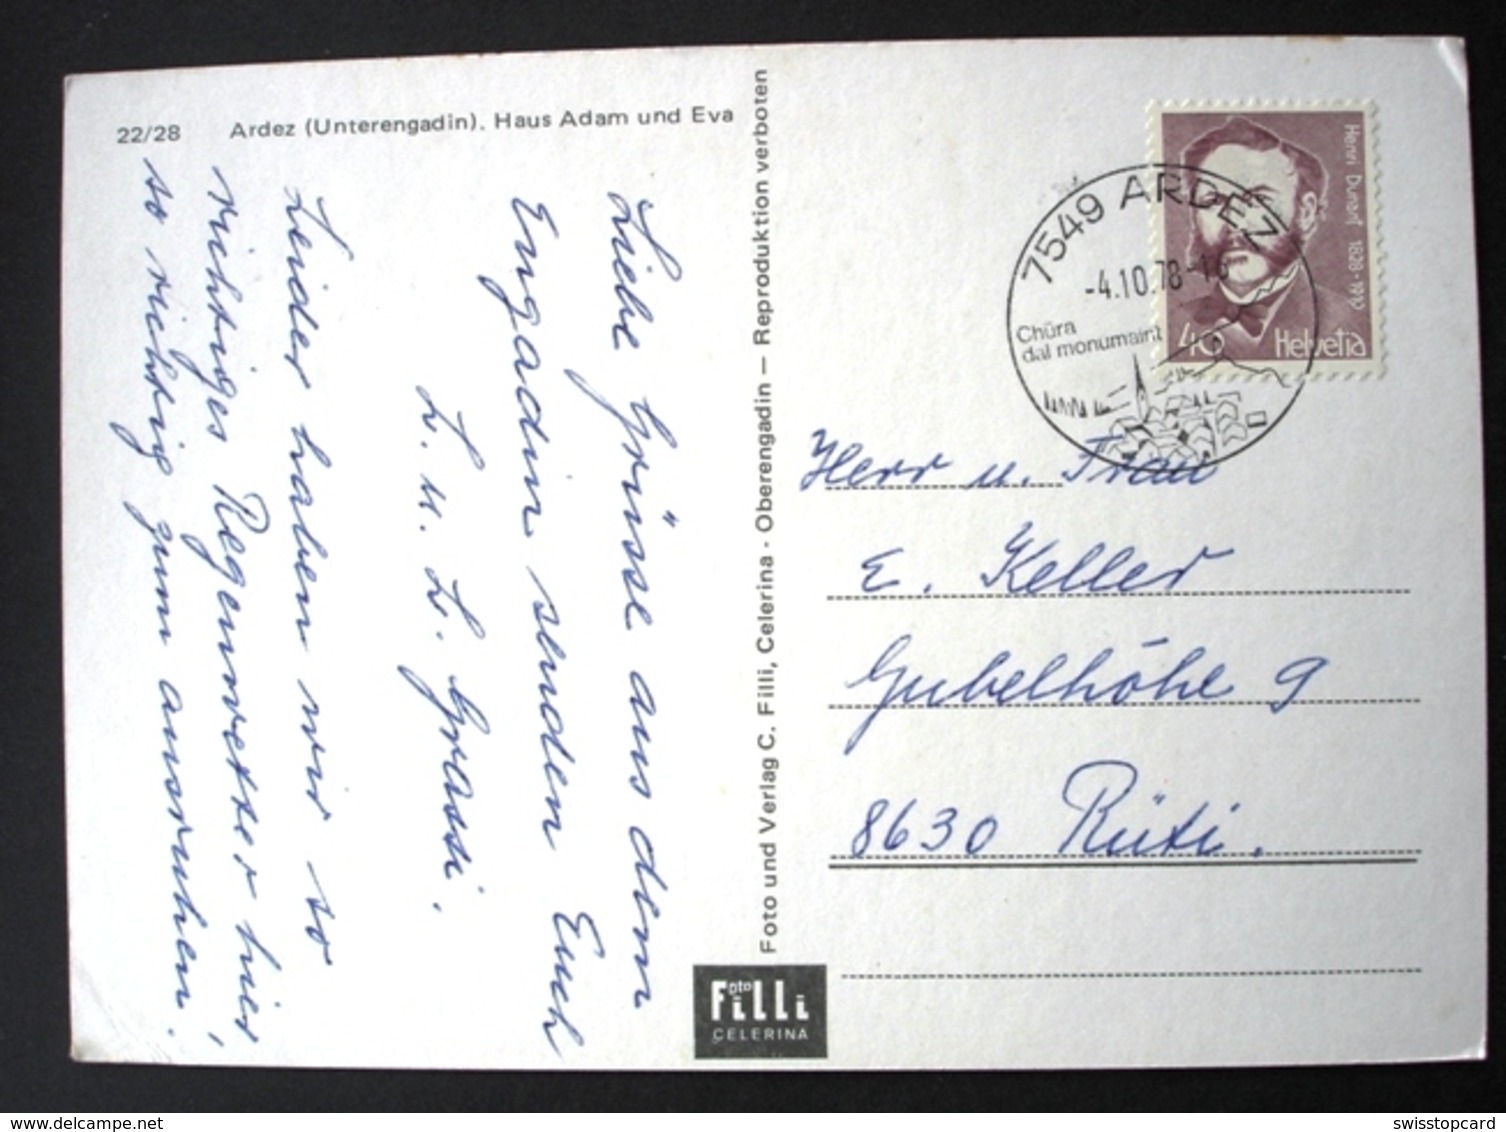 22/28 Ardez (Unterengadin). Haus Adam und Eva
Liebe Grüsse aus dem
Engadin senden Euch
L. u. L. Grassi.
Leider haben wir so
richtiges Regenwetter hier,
so richtig zum ausruhen.
Foto und Verlag C. Filli, Celerina - Oberengadin — Reproduktion verboten
Foto Filli
CELERINA
Henri Dunant 1828-1910
40 Helvetia
7549 ARDEZ
-4.10.78-18
Chüra
dal monumaint
Herr u. Frau
E. Keller
Gubelhöhe 9
8630 Rüti.
delcampe.net
swisstopcard